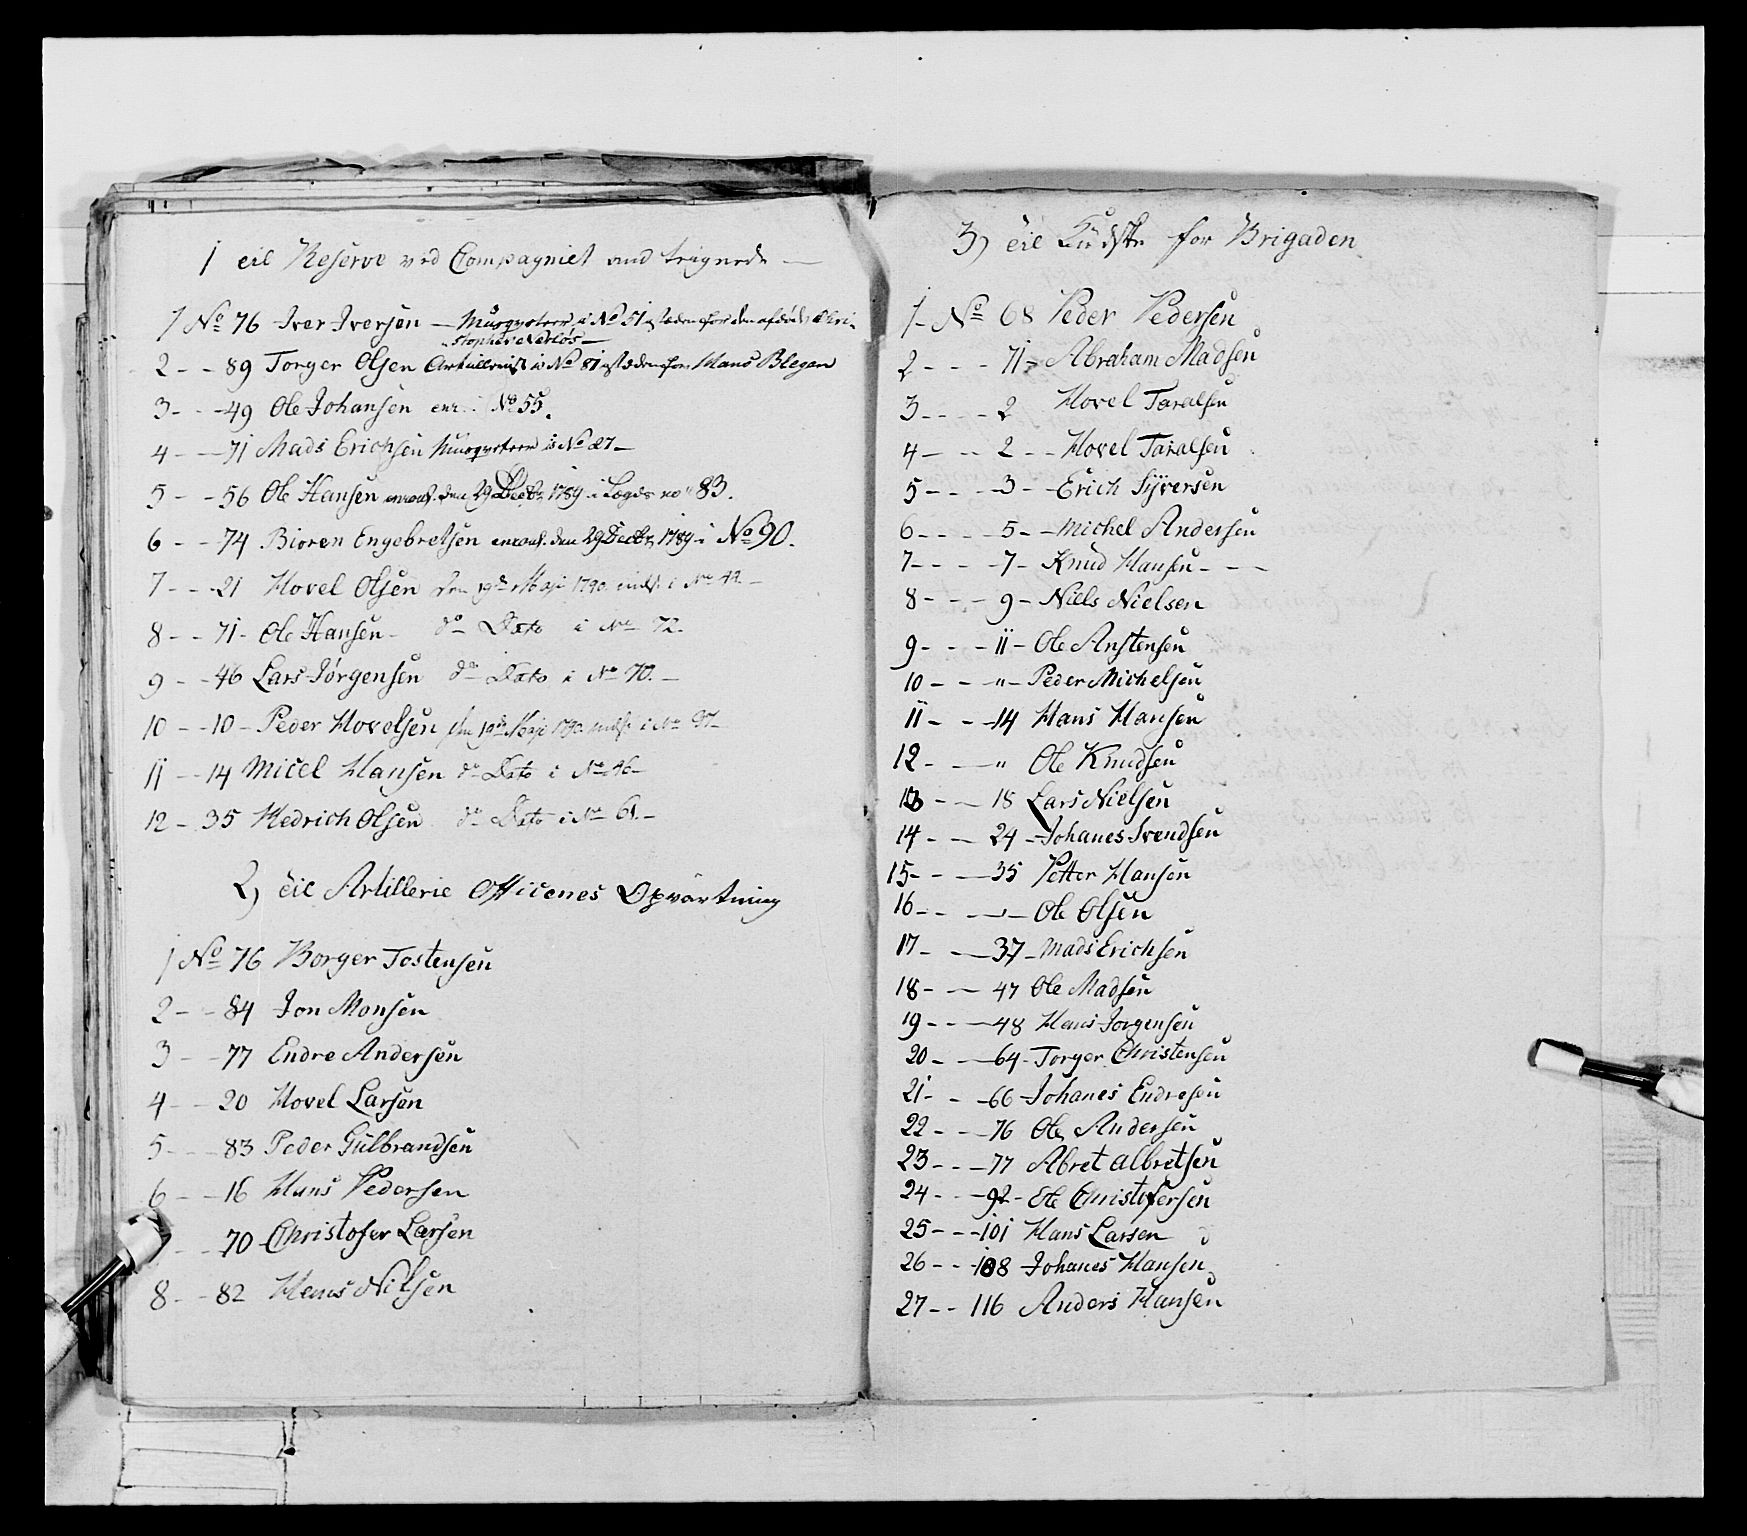 1 til Reserve ved Compagniet
1 No 76 Iver Iversen — Musqueteer i No 51 istæden for den afdöde Chri-
stopher
2 - - 89 Torger Olsen Artillerist i No 81 istæden for Hans Blegen
3 - - 49 Ole Johansen enr. i No 55.
4 - - 71 Mads Erichsen Musqueteer i No 27 -
5 - - 56 Ole Hansen enroul. den 29 Decbr 1789 i Lægds no 83.
6 - - 74 Biøren Engebretsen enroul. den 29 Decbr 1789 i No 90.
7 - - 21 Hovel Olsen den 19de Maji 1790 inds. i No 42 -
8 - - 71 - Ole Hansen - do Dato i No 72.
9 - - 46 Lars Jørgensen do Dato i No 70. -
10 - - 10 - Peder Hovelsen den 19de Maji 1790 inds. i No 97 -
11 - - 14 Micel Hansen do Dato i No 46 -
12 - 35 Hedrich Olsen do Dato i No 61. -
2) til Artillerie Officenes Opvartning
1 No 76 Borger Tostensen
2 - - 84 Jon Monsen
3 - - 77 Endre Andersen
4 - - 20 Hovel Larsen
5 - - - 83 Peder Gulbrandsen
6 - - 16 Hans Pedersen
- - 70 Christofer Larsen
8 - - 82 Hans Nilsen
3) til Kudske for Brigaden
1 - No 68 Peder Pedersen
2 - - - 71 - Abraham Madsen
3 - - - - 2 Hovel Taralsen
4 - - - 2 - - Hovel Taralsen
5 - - - - 3 - - Erich Syversen
6 - - - - 5 - - Michel Andersen
7 - - - - 7 - Knud Hansen - - -
8 - - - - 9 - Niels Nielsen
9 - - - - 11 - Ole Anstensen
10 - - - " - Peder Michelsen
11 - - - 14 Hans Hansen
12 - - - " Ole Knudsen
13 - - - 18 Lars Nielsen
14 - - - 24 - Johanes Svendsen
15 - - - - 35 Petter Hansen
16 - - - " - Ole Olsen
17 - - - 37 - Mads Erichsen
18 - - - 47 Ole Madsen
19 - - - 48 Hans Jorgensen
20 - - - 64 - Torger Christensen
21 - - - 66 - Johanes Endresen
22 - - - 76 Ole Andersen
23 - - - 77 Abret albretsen
24 - - - 92 - Ole Christofersen
25 - - - 101 Hans Larsen
26 - - - 108 Johanes Hansen
27 - - 116 Anders Hansen